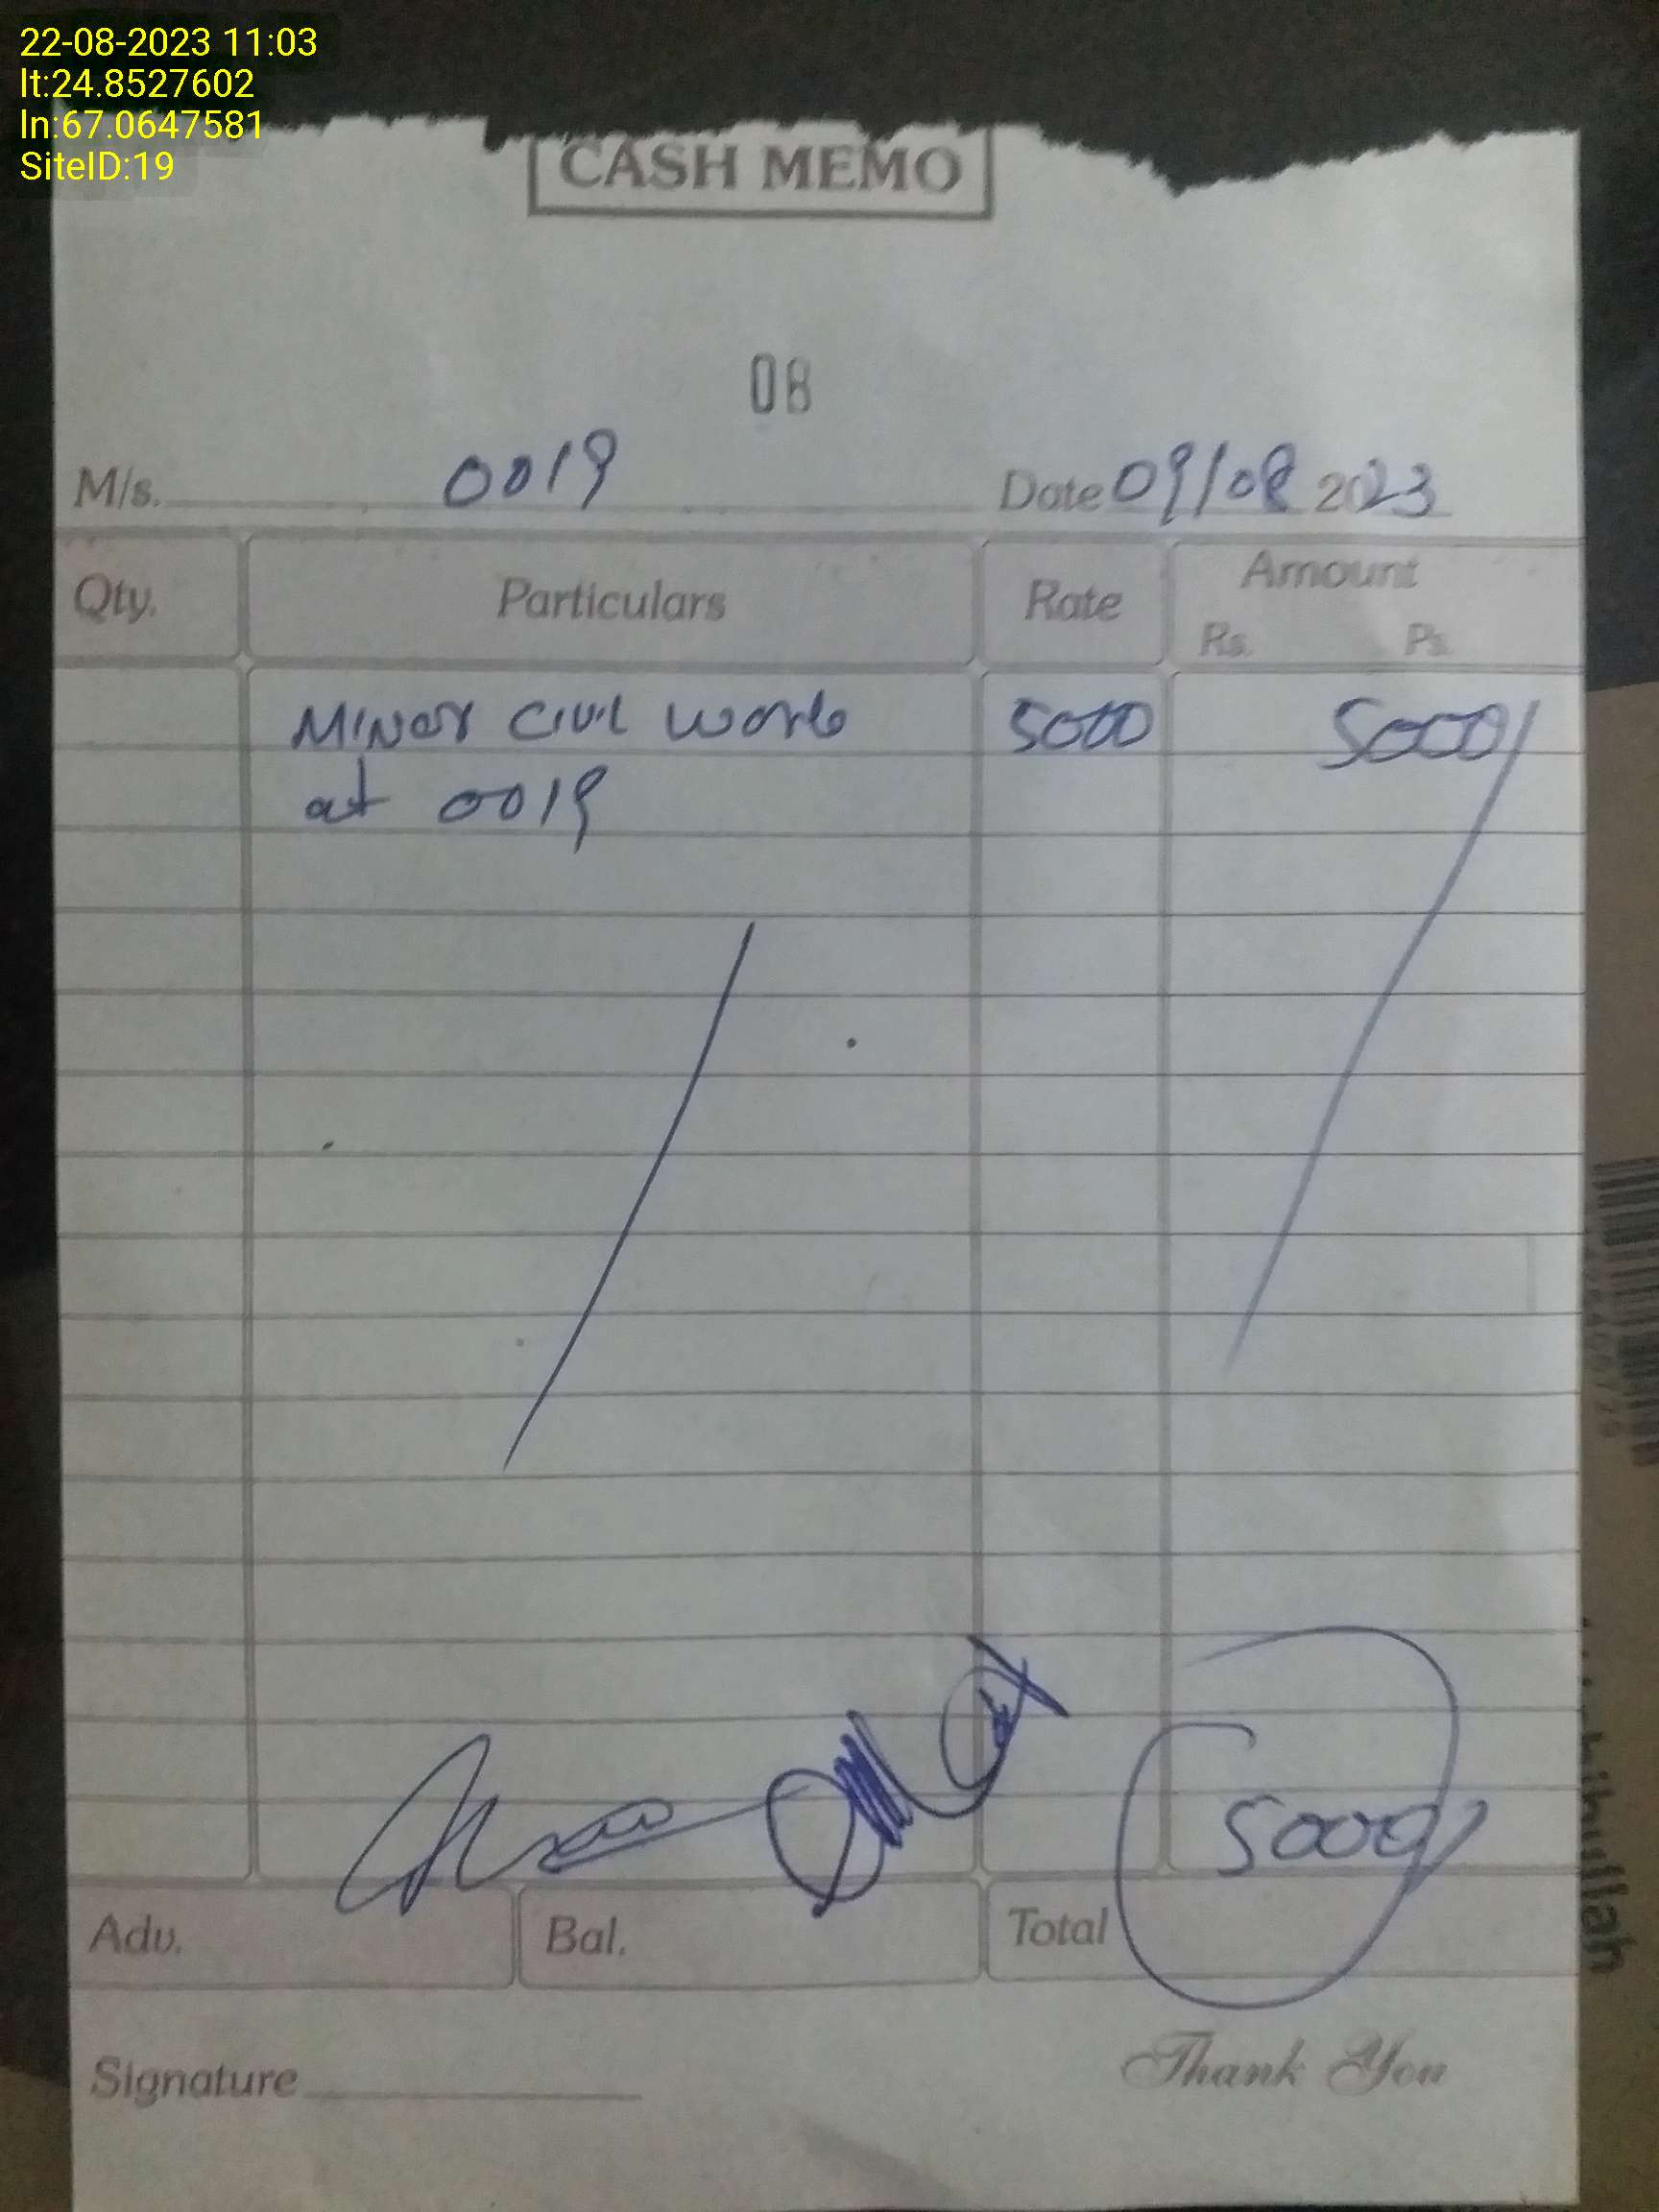 22-08-2023 11:03
lt:24.8527602
ln:67.0647581
SiteID:19
CASH MEMO
08
M/s. 0019 Date 09/08 2023
Qty. Particulars Rate Amount
Rs. Ps.
Minor Civil work 5000 5000/
at 0019
5000/
Adv. Bal. Total
Signature
Thank You